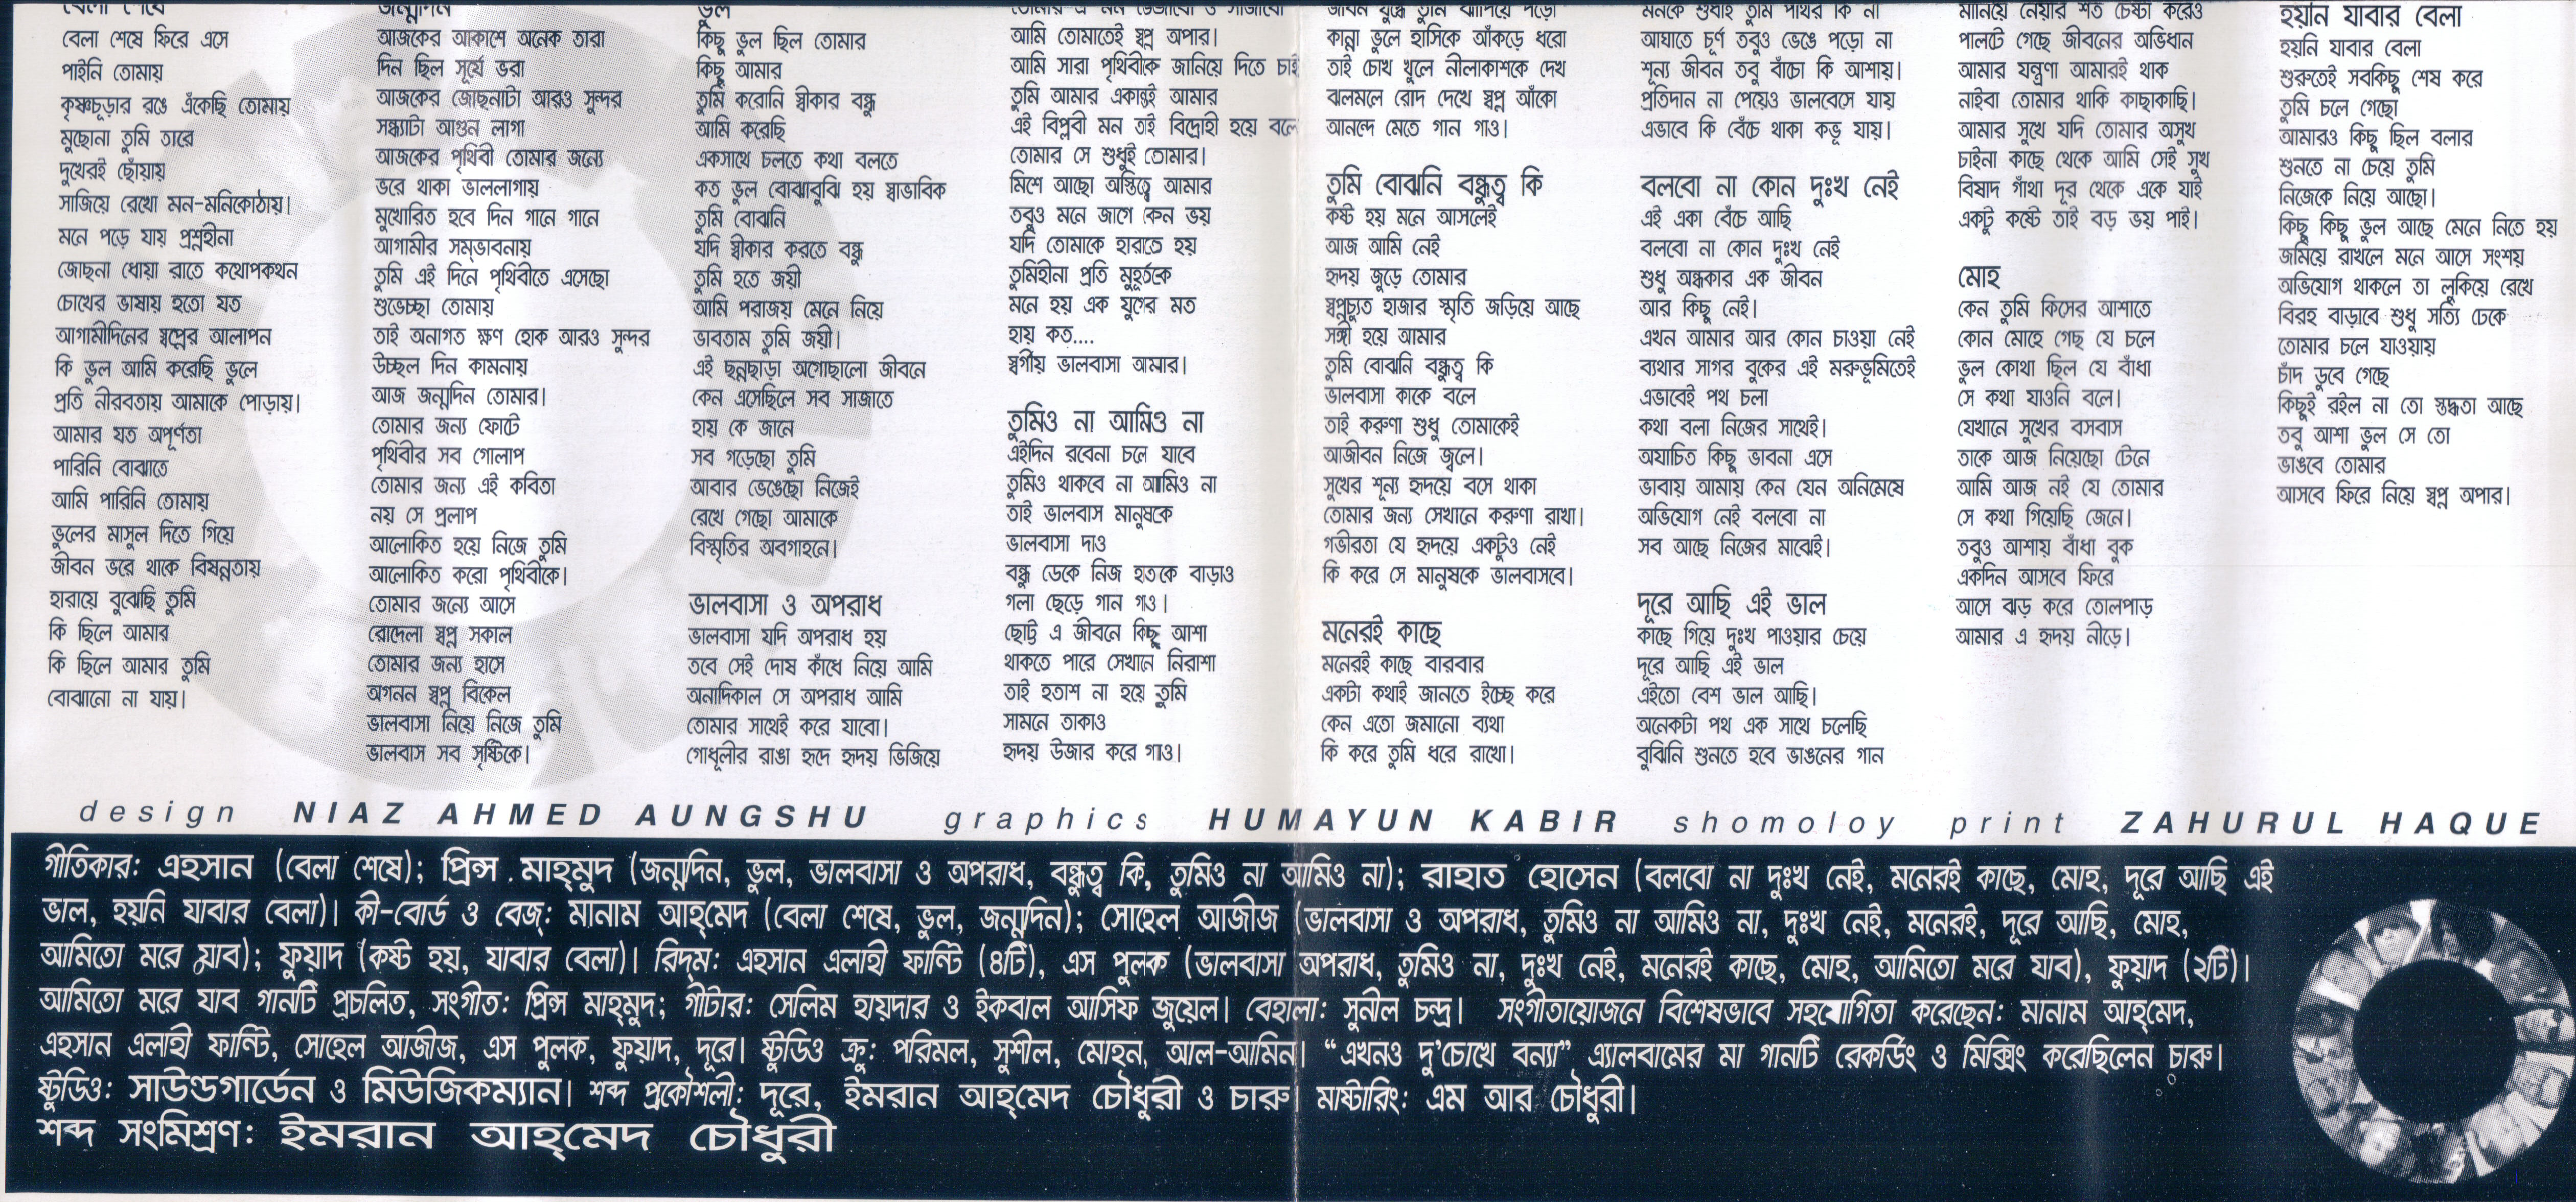 বেলা শেষে
বেলা শেষে ফিরে এসে
পাইনি তোমায়
কৃষ্ণচূড়ার রঙে এঁকেছি তোমায়
মুছোনা তুমি তারে
দুখেরই ছোঁয়ায়
সাজিয়ে রেখো মন-মনিকোঠায়।
মনে পড়ে যায় প্রশ্নহীনা
জোছনা ধোয়া রাতে কথোপকথন
চোখের ভাষায় হতো যত
আগামীদিনের স্বপ্নের আলাপন
কি ভুল আমি করেছি ভুলে
প্রতি নীরবতায় আমাকে পোড়ায়।
আমার যত অপূর্ণতা
পারিনি বোঝাতে
আমি পারিনি তোমায়
ভুলের মাসুল দিতে গিয়ে
জীবন ভরে থাকে বিষন্নতায়
হারায়ে বুঝেছি তুমি
কি ছিলে আমার
কি ছিলে আমার তুমি
বোঝানো না যায়।
জন্মদিন
আজকের আকাশে অনেক তারা
দিন ছিল সূর্যে ভরা
আজকের জোছনাটা আরও সুন্দর
সন্ধ্যাটা আগুন লাগা
আজকের পৃথিবী তোমার জন্যে
ভরে থাকা ভাললাগায়
মুখোরিত হবে দিন গানে গানে
আগামীর সম্ভাবনায়
তুমি এই দিনে পৃথিবীতে এসেছো
শুভেচ্ছা তোমায়
তাই অনাগত ক্ষণ হোক আরও সুন্দর
উচ্ছল দিন কামনায়
আজ জন্মদিন তোমার।
তোমার জন্য ফোটে
পৃথিবীর সব গোলাপ
তোমার জন্য এই কবিতা
নয় সে প্রলাপ
আলোকিত হয়ে নিজে তুমি
আলোকিত করো পৃথিবীকে।
তোমার জন্যে আসে
রোদেলা স্বপ্ন সকাল
তোমার জন্য হাসে
অগনন স্বপ্ন বিকেল
ভালবাসা নিয়ে নিজে তুমি
ভালবাস সব সৃষ্টিকে।
ভুল
কিছু ভুল ছিল তোমার
কিছু আমার
তুমি করোনি স্বীকার বন্ধু
আমি করেছি
একসাথে চলতে কথা বলতে
কত ভুল বোঝাবুঝি হয় স্বাভাবিক
তুমি বোঝনি
যদি স্বীকার করতে বন্ধু
তুমি হতে জয়ী
আমি পরাজয় মেনে নিয়ে
ভাবতাম তুমি জয়ী।
এই ছন্নছাড়া অগোছালো জীবনে
কেন এসেছিলে সব সাজাতে
হায় কে জানে
সব গড়েছো তুমি
আবার ভেঙেছো নিজেই
রেখে গেছো আমাকে
বিস্মৃতির অবগাহনে।
ভালবাসা ও অপরাধ
ভালবাসা যদি অপরাধ হয়
তবে সেই দোষ কাঁধে নিয়ে আমি
অনাদিকাল সে অপরাধ আমি
তোমার সাথেই করে যাবো।
গোধূলীর রাঙা হৃদে হৃদয় ভিজিয়ে
তোমার এ মন ভেজাবো ও সাজাবো
আমি তোমাতেই স্বপ্ন অপার।
আমি সারা পৃথিবীকে জানিয়ে দিতে চাই
তুমি আমার একান্তই আমার
এই বিপ্লবী মন তাই বিদ্রোহী হয়ে বলে
তোমার সে শুধুই তোমার।
মিশে আছো অস্তিত্বে আমার
তবুও মনে জাগে কেন ভয়
যদি তোমাকে হারাতে হয়
তুমিহীনা প্রতি মুহূর্তকে
মনে হয় এক যুগের মত
হায় কত....
স্বর্গীয় ভালবাসা আমার।
তুমিও না আমিও না
এইদিন রবেনা চলে যাবে
তুমিও থাকবে না আমিও না
তাই ভালবাস মানুষকে
ভালবাসা দাও
বন্ধু ডেকে নিজ হাতকে বাড়াও
গলা ছেড়ে গান গাও।
ছোট্ট এ জীবনে কিছু আশা
থাকতে পারে সেখানে নিরাশা
তাই হতাশ না হয়ে তুমি
সামনে তাকাও
হৃদয় উজার করে গাও।
জীবন যুদ্ধে তুমি ঝাঁপিয়ে পড়ো
কান্না ভুলে হাসিকে আঁকড়ে ধরো
তাই চোখ খুলে নীলাকাশকে দেখ
ঝলমলে রোদ দেখে স্বপ্ন আঁকো
আনন্দে মেতে গান গাও।
তুমি বোঝনি বন্ধুত্ব কি
কষ্ট হয় মনে আসলেই
আজ আমি নেই
হৃদয় জুড়ে তোমার
স্বপ্নচ্যুত হাজার স্মৃতি জড়িয়ে আছে
সঙ্গী হয়ে আমার
তুমি বোঝনি বন্ধুত্ব কি
ভালবাসা কাকে বলে
তাই করুণা শুধু তোমাকেই
আজীবন নিজে জ্বলে।
সুখের শূন্য হৃদয়ে বসে থাকা
তোমার জন্য সেখানে করুণা রাখা।
গভীরতা যে হৃদয়ে একটুও নেই
কি করে সে মানুষকে ভালবাসবে।
মনেরই কাছে
মনেরই কাছে বারবার
একটা কথাই জানতে ইচ্ছে করে
কেন এতো জমানো ব্যথা
কি করে তুমি ধরে রাখো।
মনকে শুধাই তুমি পাথর কি না
আঘাতে চূর্ণ তবুও ভেঙে পড়ো না
শূন্য জীবন তবু বাঁচো কি আশায়।
প্রতিদান না পেয়েও ভালবেসে যায়
এভাবে কি বেঁচে থাকা কভূ যায়।
বলবো না কোন দুঃখ নেই
এই একা বেঁচে আছি
বলবো না কোন দুঃখ নেই
শুধু অন্ধকার এক জীবন
আর কিছু নেই।
এখন আমার আর কোন চাওয়া নেই
ব্যথার সাগর বুকের এই মরুভূমিতেই
এভাবেই পথ চলা
কথা বলা নিজের সাথেই।
অযাচিত কিছু ভাবনা এসে
ভাবায় আমায় কেন যেন অনিমেষে
অভিযোগ নেই বলবো না
সব আছে নিজের মাঝেই।
দূরে আছি এই ভাল
কাছে গিয়ে দুঃখ পাওয়ার চেয়ে
দূরে আছি এই ভাল
এইতো বেশ ভাল আছি।
অনেকটা পথ এক সাথে চলেছি
বুঝিনি শুনতে হবে ভাঙনের গান
মানিয়ে নেয়ার শত চেষ্টা করেও
পালটে গেছে জীবনের অভিধান
আমার যন্ত্রণা আমারই থাক
নাইবা তোমার থাকি কাছাকাছি।
আমার সুখে যদি তোমার অসুখ
চাইনা কাছে থেকে আমি সেই সুখ
বিষাদ গাঁথা দূর থেকে একে যাই
একটু কষ্টে তাই বড় ভয় পাই।
মোহ
কেন তুমি কিসের আশাতে
কোন মোহে গেছ যে চলে
ভুল কোথা ছিল যে বাঁধা
সে কথা যাওনি বলে।
যেখানে সুখের বসবাস
তাকে আজ নিয়েছো টেনে
আমি আজ নই যে তোমার
সে কথা গিয়েছি জেনে।
তবুও আশায় বাঁধা বুক
একদিন আসবে ফিরে
আসে ঝড় করে তোলপাড়
আমার এ হৃদয় নীড়ে।
হয়নি যাবার বেলা
হয়নি যাবার বেলা
শুরুতেই সবকিছু শেষ করে
তুমি চলে গেছো
আমারও কিছু ছিল বলার
শুনতে না চেয়ে তুমি
নিজেকে নিয়ে আছো।
কিছু কিছু ভুল আছে মেনে নিতে হয়
জমিয়ে রাখলে মনে আসে সংশয়
অভিযোগ থাকলে তা লুকিয়ে রেখে
বিরহ বাড়াবে শুধু সত্যি ঢেকে
তোমার চলে যাওয়ায়
চাঁদ ডুবে গেছে
কিছুই রইল না তো স্তব্ধতা আছে
তবু আশা ভুল সে তো
ভাঙবে তোমার
আসবে ফিরে নিয়ে স্বপ্ন অপার।
design NIAZ AHMED AUNGSHU graphics HUMAYUN KABIR shomoloy print ZAHURUL HAQUE
গীতিকার: এহসান (বেলা শেষে); প্রিন্স মাহ্‌মুদ (জন্মদিন, ভুল, ভালবাসা ও অপরাধ, বন্ধুত্ব কি, তুমিও না আমিও না); রাহাত হোসেন (বলবো না দুঃখ নেই, মনেরই কাছে, মোহ, দূরে আছি এই
ভাল, হয়নি যাবার বেলা)। কী-বোর্ড ও বেজ্: মানাম আহ্‌মেদ (বেলা শেষে, ভুল, জন্মদিন); সোহেল আজীজ (ভালবাসা ও অপরাধ, তুমিও না আমিও না, দুঃখ নেই, মনেরই, দূরে আছি, মোহ,
আমিতো মরে যাব); ফুয়াদ (কষ্ট হয়, যাবার বেলা)। রিদ্‌ম: এহসান এলাহী ফান্টি (৪টি), এস পুলক (ভালবাসা অপরাধ, তুমিও না, দুঃখ নেই, মনেরই কাছে, মোহ, আমিতো মরে যাব), ফুয়াদ (২টি)।
আমিতো মরে যাব গানটি প্রচলিত, সংগীত: প্রিন্স মাহ্‌মুদ; গীটার: সেলিম হায়দার ও ইকবাল আসিফ জুয়েল। বেহালা: সুনীল চন্দ্র। সংগীতায়োজনে বিশেষভাবে সহযোগিতা করেছেন: মানাম আহ্‌মেদ,
এহসান এলাহী ফান্টি, সোহেল আজীজ, এস পুলক, ফুয়াদ, দূরে। ষ্টুডিও ক্রু: পরিমল, সুশীল, মোহন, আল-আমিন। “এখনও দু'চোখে বন্যা” এ্যালবামের মা গানটি রেকর্ডিং ও মিক্সিং করেছিলেন চারু।
ষ্টুডিও: সাউন্ডগার্ডেন ও মিউজিকম্যান। শব্দ প্রকৌশলী: দূরে, ইমরান আহ্‌মেদ চৌধুরী ও চারু। মাষ্টারিং: এম আর চৌধুরী।
শব্দ সংমিশ্রণ: ইমরান আহ্‌মেদ চৌধুরী